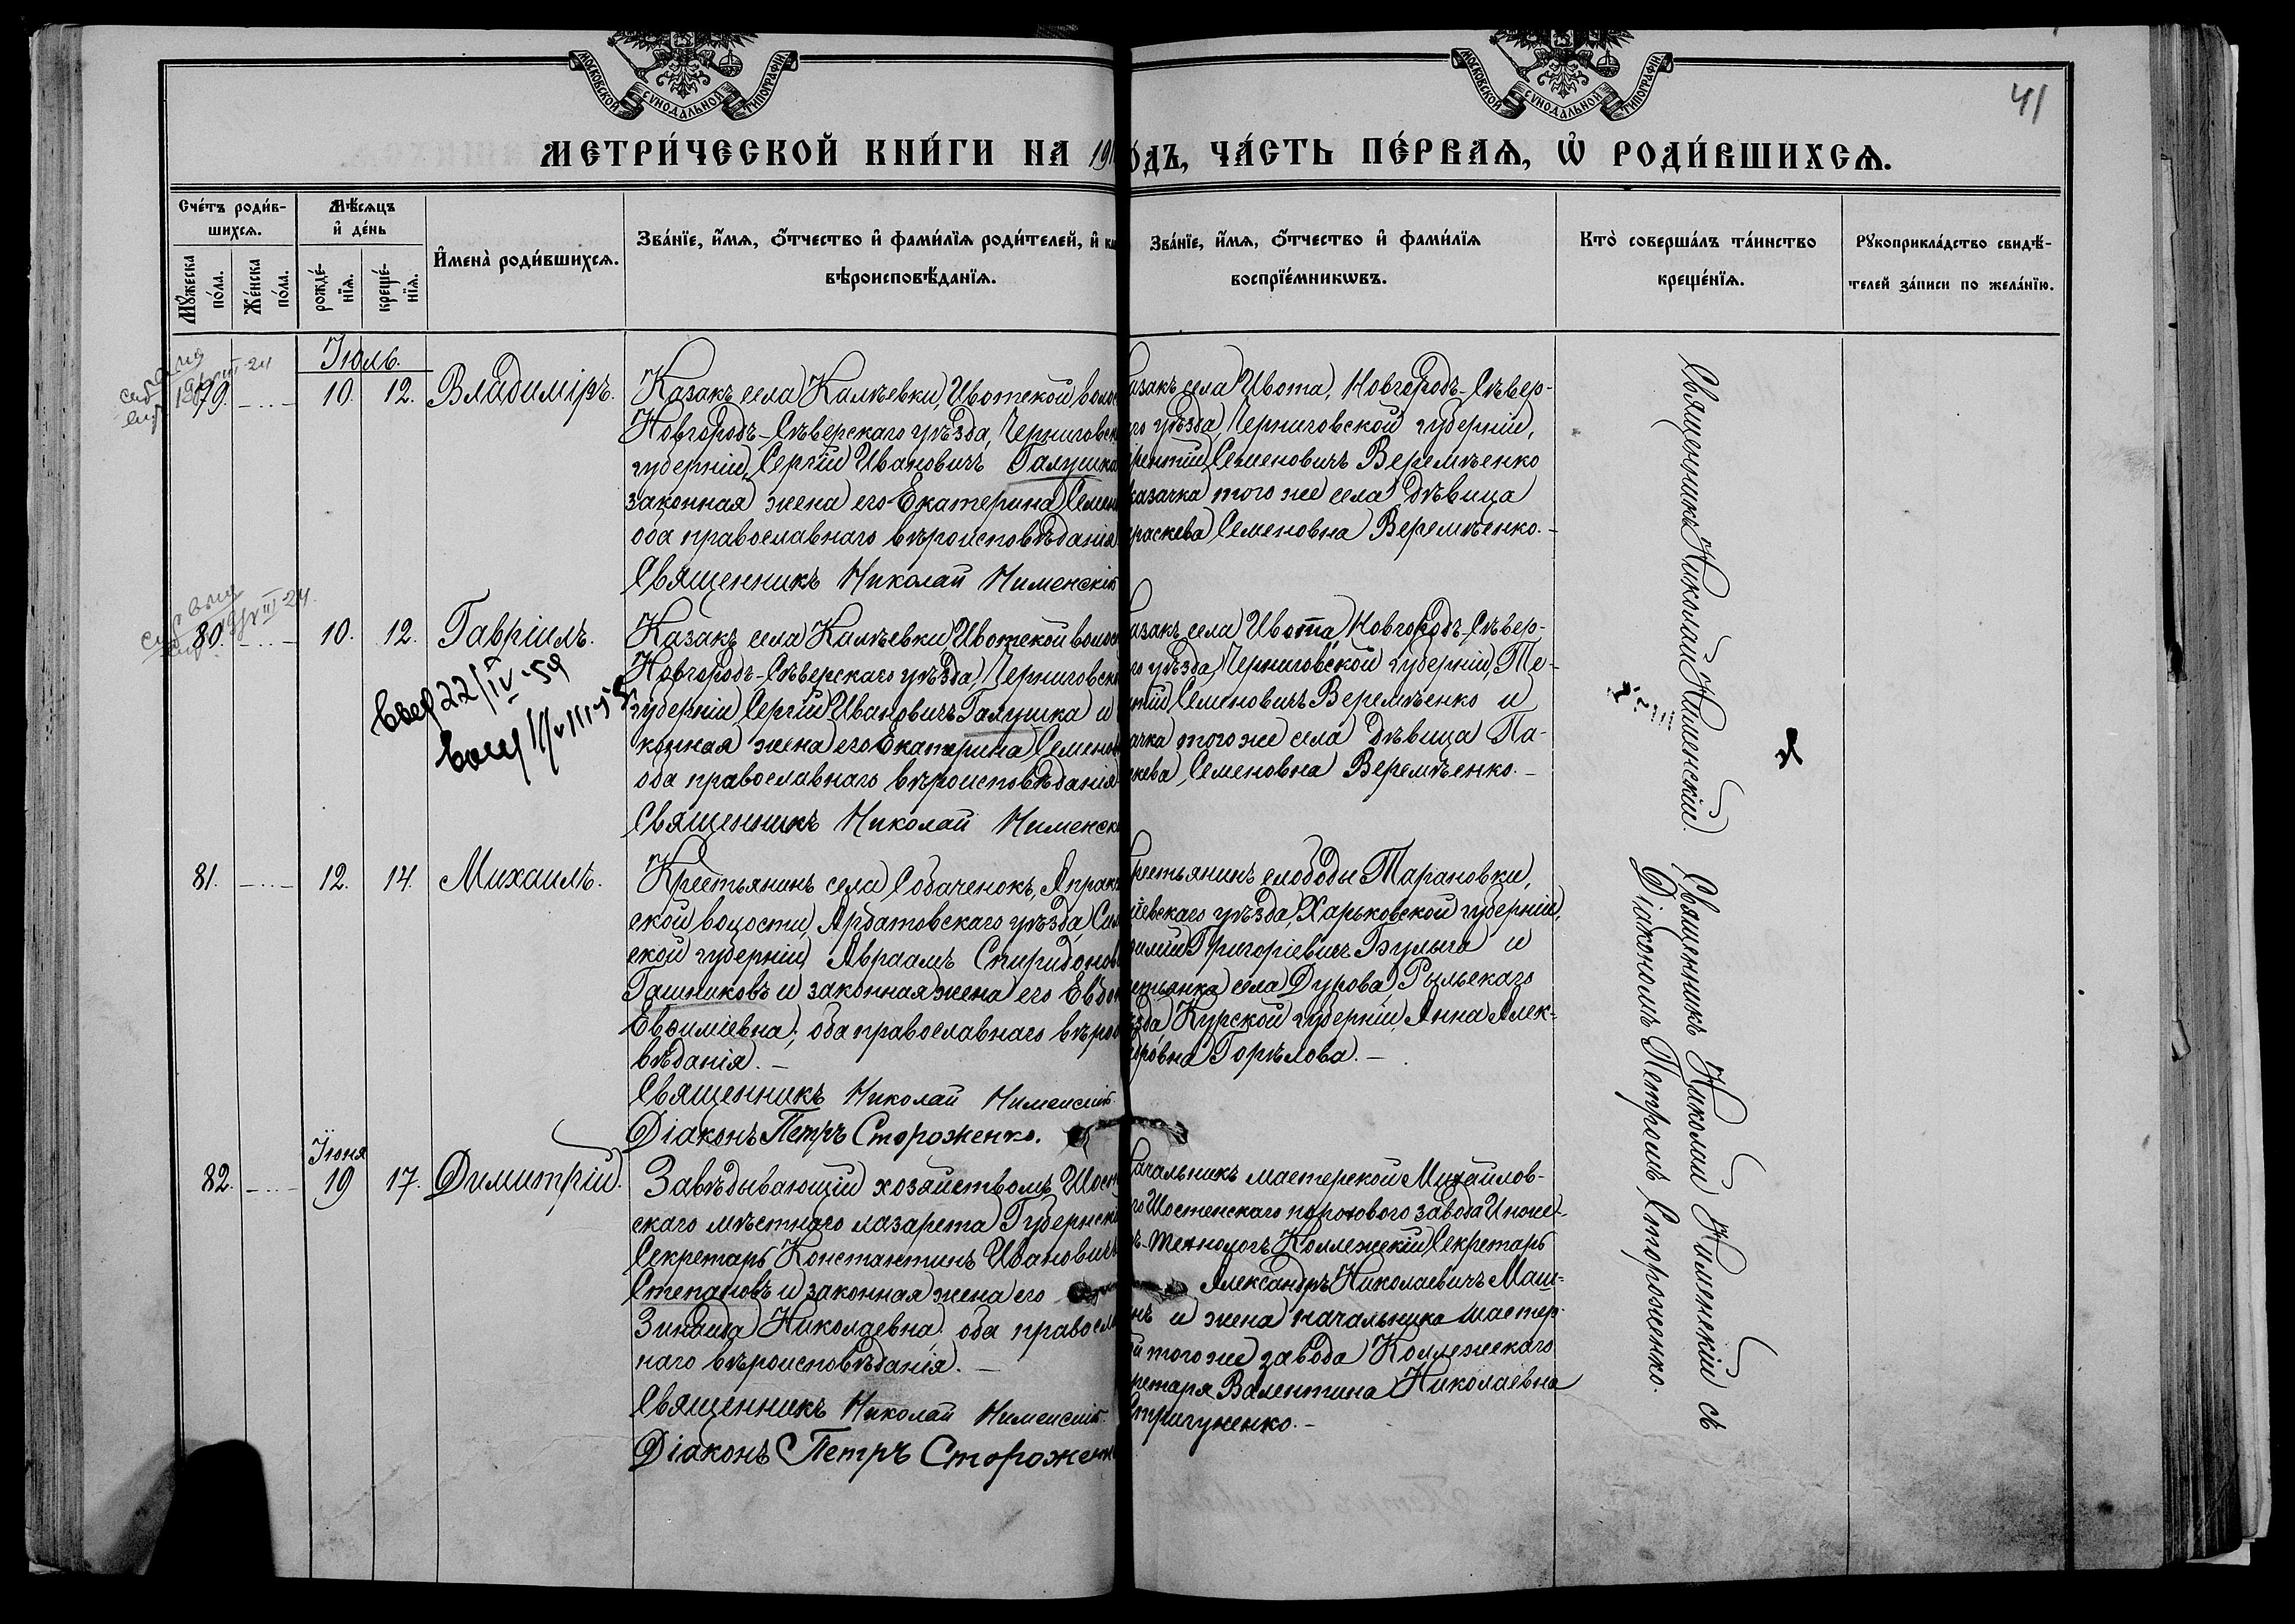 МОСКОВСКОЙ СѴНОДАЛЬНОЙ ТИПОГРАФІИ
МОСКОВСКОЙ СѴНОДАЛЬНОЙ ТИПОГРАФІИ
41
МЕТРИ́ЧЕСКОЙ КНИ́ГИ НА 191
ОДЪ, ЧА́СТЬ ПЕ́РВАѦ, Ѡ҆ РОДИ́ВШИХСѦ.
Сче́тъ роди́в-
шихсѧ.
Мꙋ́жеска по́ла.
Же́нска по́ла.
Мѣ́сѧцъ
и҆ де́нь
рожде́-
нїѧ.
креще́-
нїѧ.
И҆мена̀ роди́вшихсѧ.
Зва́нїе, и҆́мѧ, ѻ҆́тчество и҆ фами́лїѧ роди́телей, и҆ ка
вѣроисповѣ́данїѧ.
Зва́нїе, и҆́мѧ, ѻ҆́тчество и҆ фами́лїѧ
воспрїе́мникѡвъ.
Кто̀ соверша́лъ та́инство
креще́нїѧ.
Рꙋкоприкла́дство свидѣ́-
телей за́писи по жела́нїю.
Іюль.
79. 10. 12. Владиміръ.
Казакъ села Калѣевки, Ивотской волос
Новгородъ-Сѣверскаго уѣзда, Черниговск
губерніи, Сергій Ивановичъ Галушка
законная жена его Екатерина Семен
оба православнаго вѣроисповѣданія
Священникъ Николай Нименскій
азакъ села Ивота, Новгородъ-Сѣвер-
го уѣзда, Черниговской губерніи,
рентій Семеновичъ Веремѣенко
казачка того же села дѣвица
раскева Семеновна Веремѣенко.-
80. 10. 12. Гавріилъ.
Казакъ села Калѣевки, Ивотской волос
Новгородъ-Сѣверскаго уѣзда, Черниговск
губерніи, Сергій Ивановичъ Галушка и
конная жена его Екатерина Семенов
оба православнаго вѣроисповѣданія
Священникъ Николай Нименск
азакъ села Ивота, Новгородъ-Сѣвер-
го уѣзда, Черниговской губерніи, Те-
нтій Семеновичъ Веремѣенко и
ачка того же села дѣвица Па-
кева Семеновна Веремѣенко.-
22/IV-59
Священникъ Николай Нименскій.
81. 12. 14. Михаилъ.
Крестьянинъ села Собаченокъ, Апрак
ской волости, Ардатовскаго уѣзда, Сим
ской губерніи, Авраамъ Спиридонов
Гашниковъ и законная жена его Евдок
Евѳиміевна; оба православнаго вѣрои
вѣданія.-
Священникъ Николай Нименскій
Діаконъ Петръ Стороженко.
рестьянинъ слободы Тарановки,
іевскаго уѣзда, Харьковской губерніи,
силій Григоріевичъ Булыга и
стьянка села Дурова, Рыльскаго
ѣзда, Курской губерніи, Анна Алек-
дровна Горѣлова.-
Іюня
82. 19 17. Димитрій.
Завѣдывающій хозяйствомъ Шост
скаго мѣстнаго лазарета Губернск
Секретарь Константинъ Ивановичъ
Степановъ и законная жена его
Зинаида Николаевна: оба правосла
наго вѣроисповѣданія.-
Священникъ Николай Нименскій
Діаконъ Петръ Стороженк
ачальникъ мастерской Михайлов-
го Шостенскаго порохового завода Инже-
ъ-технологъ Коллежскій Секретарь
Александръ Николаевичъ Маш-
нъ и жена начальника мастер-
й того же завода Коллежскаго
ретаря Валентина Николаевна
Стригуненко.-
Священникъ Николай Нименскій съ
Діакономъ Петромъ Стороженко.